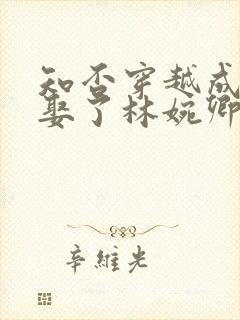 知否穿越成
娶了林婉卿
辛维光